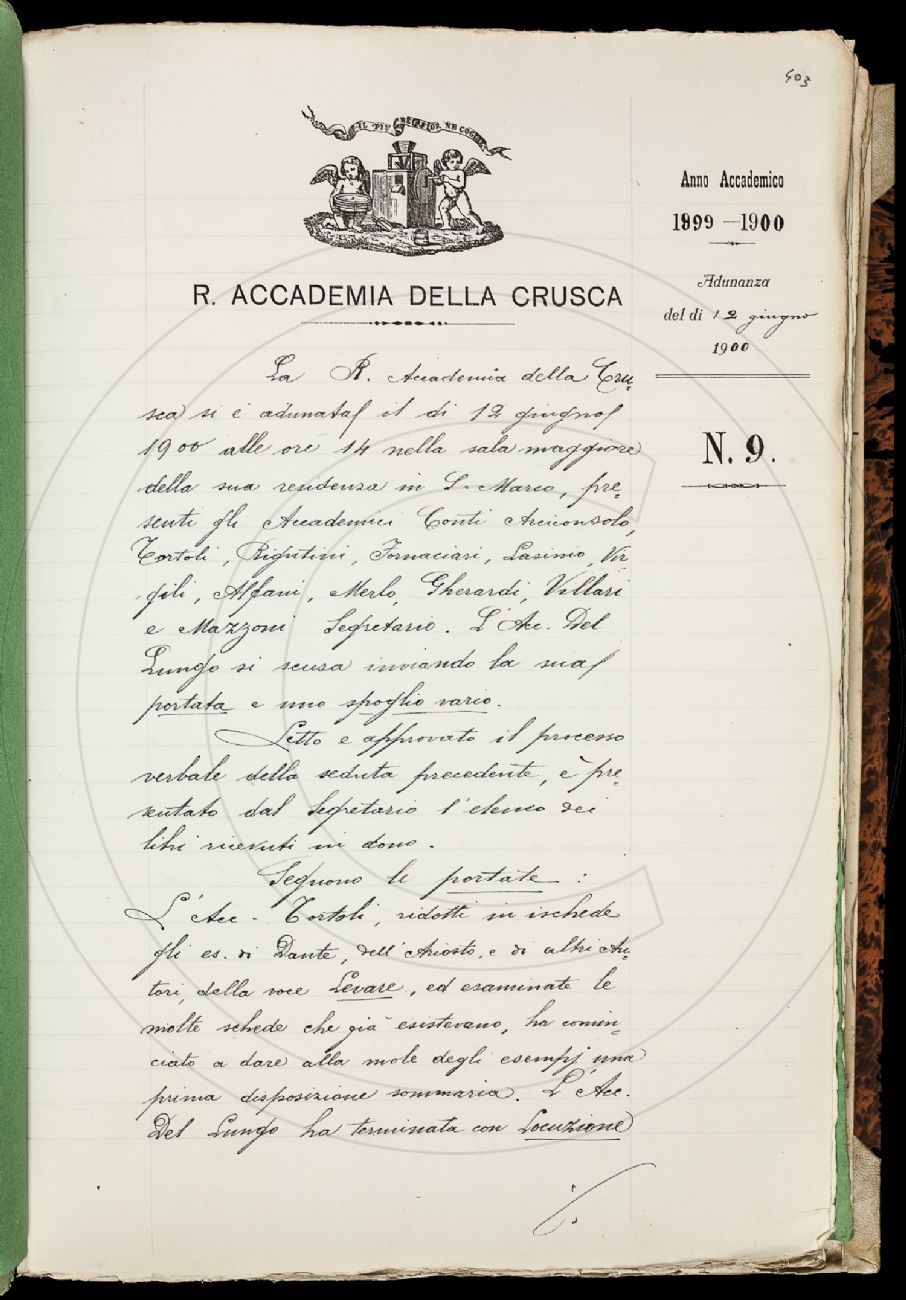 403
IL PIÙ BEL FIOR NE COGLIE
Anno Accademico
1899–1900
Adunanza
del dì 12 giugno
1900
N. 9.
R. ACCADEMIA DELLA CRUSCA
La R. Accademia della Cru-
sca si è adunata il dì 12 giugno
1900 alle ore 14 nella sala maggiore
della sua residenza in S. Marco, pre-
senti gli Accademici Conti Arciconsolo,
Tortoli, Rigutini, Fornaciari, Lasinio, Vir
gili, Alfani, Merlo, Gherardi, Villari
e Mazzoni Segretario. L'Acc. Del
Lungo si scusa inviando la sua
portata e uno spoglio vario.
Letto e approvato il processo
verbale della seduta precedente, è pre-
sentato dal Segretario l'elenco dei
libri ricevuti in dono.
Seguono le portate:
L'Acc. Tortoli, ridotti in ischede
gli es. di Dante, dell'Ariosto, e di altri Au-
tori, della voce Levare, ed esaminate le
molte schede che già esistevano, ha comin-
ciato a dare alla mole degli esempj una
prima disposizione sommaria. L'Acc.
Del Lungo ha terminata con Locuzione